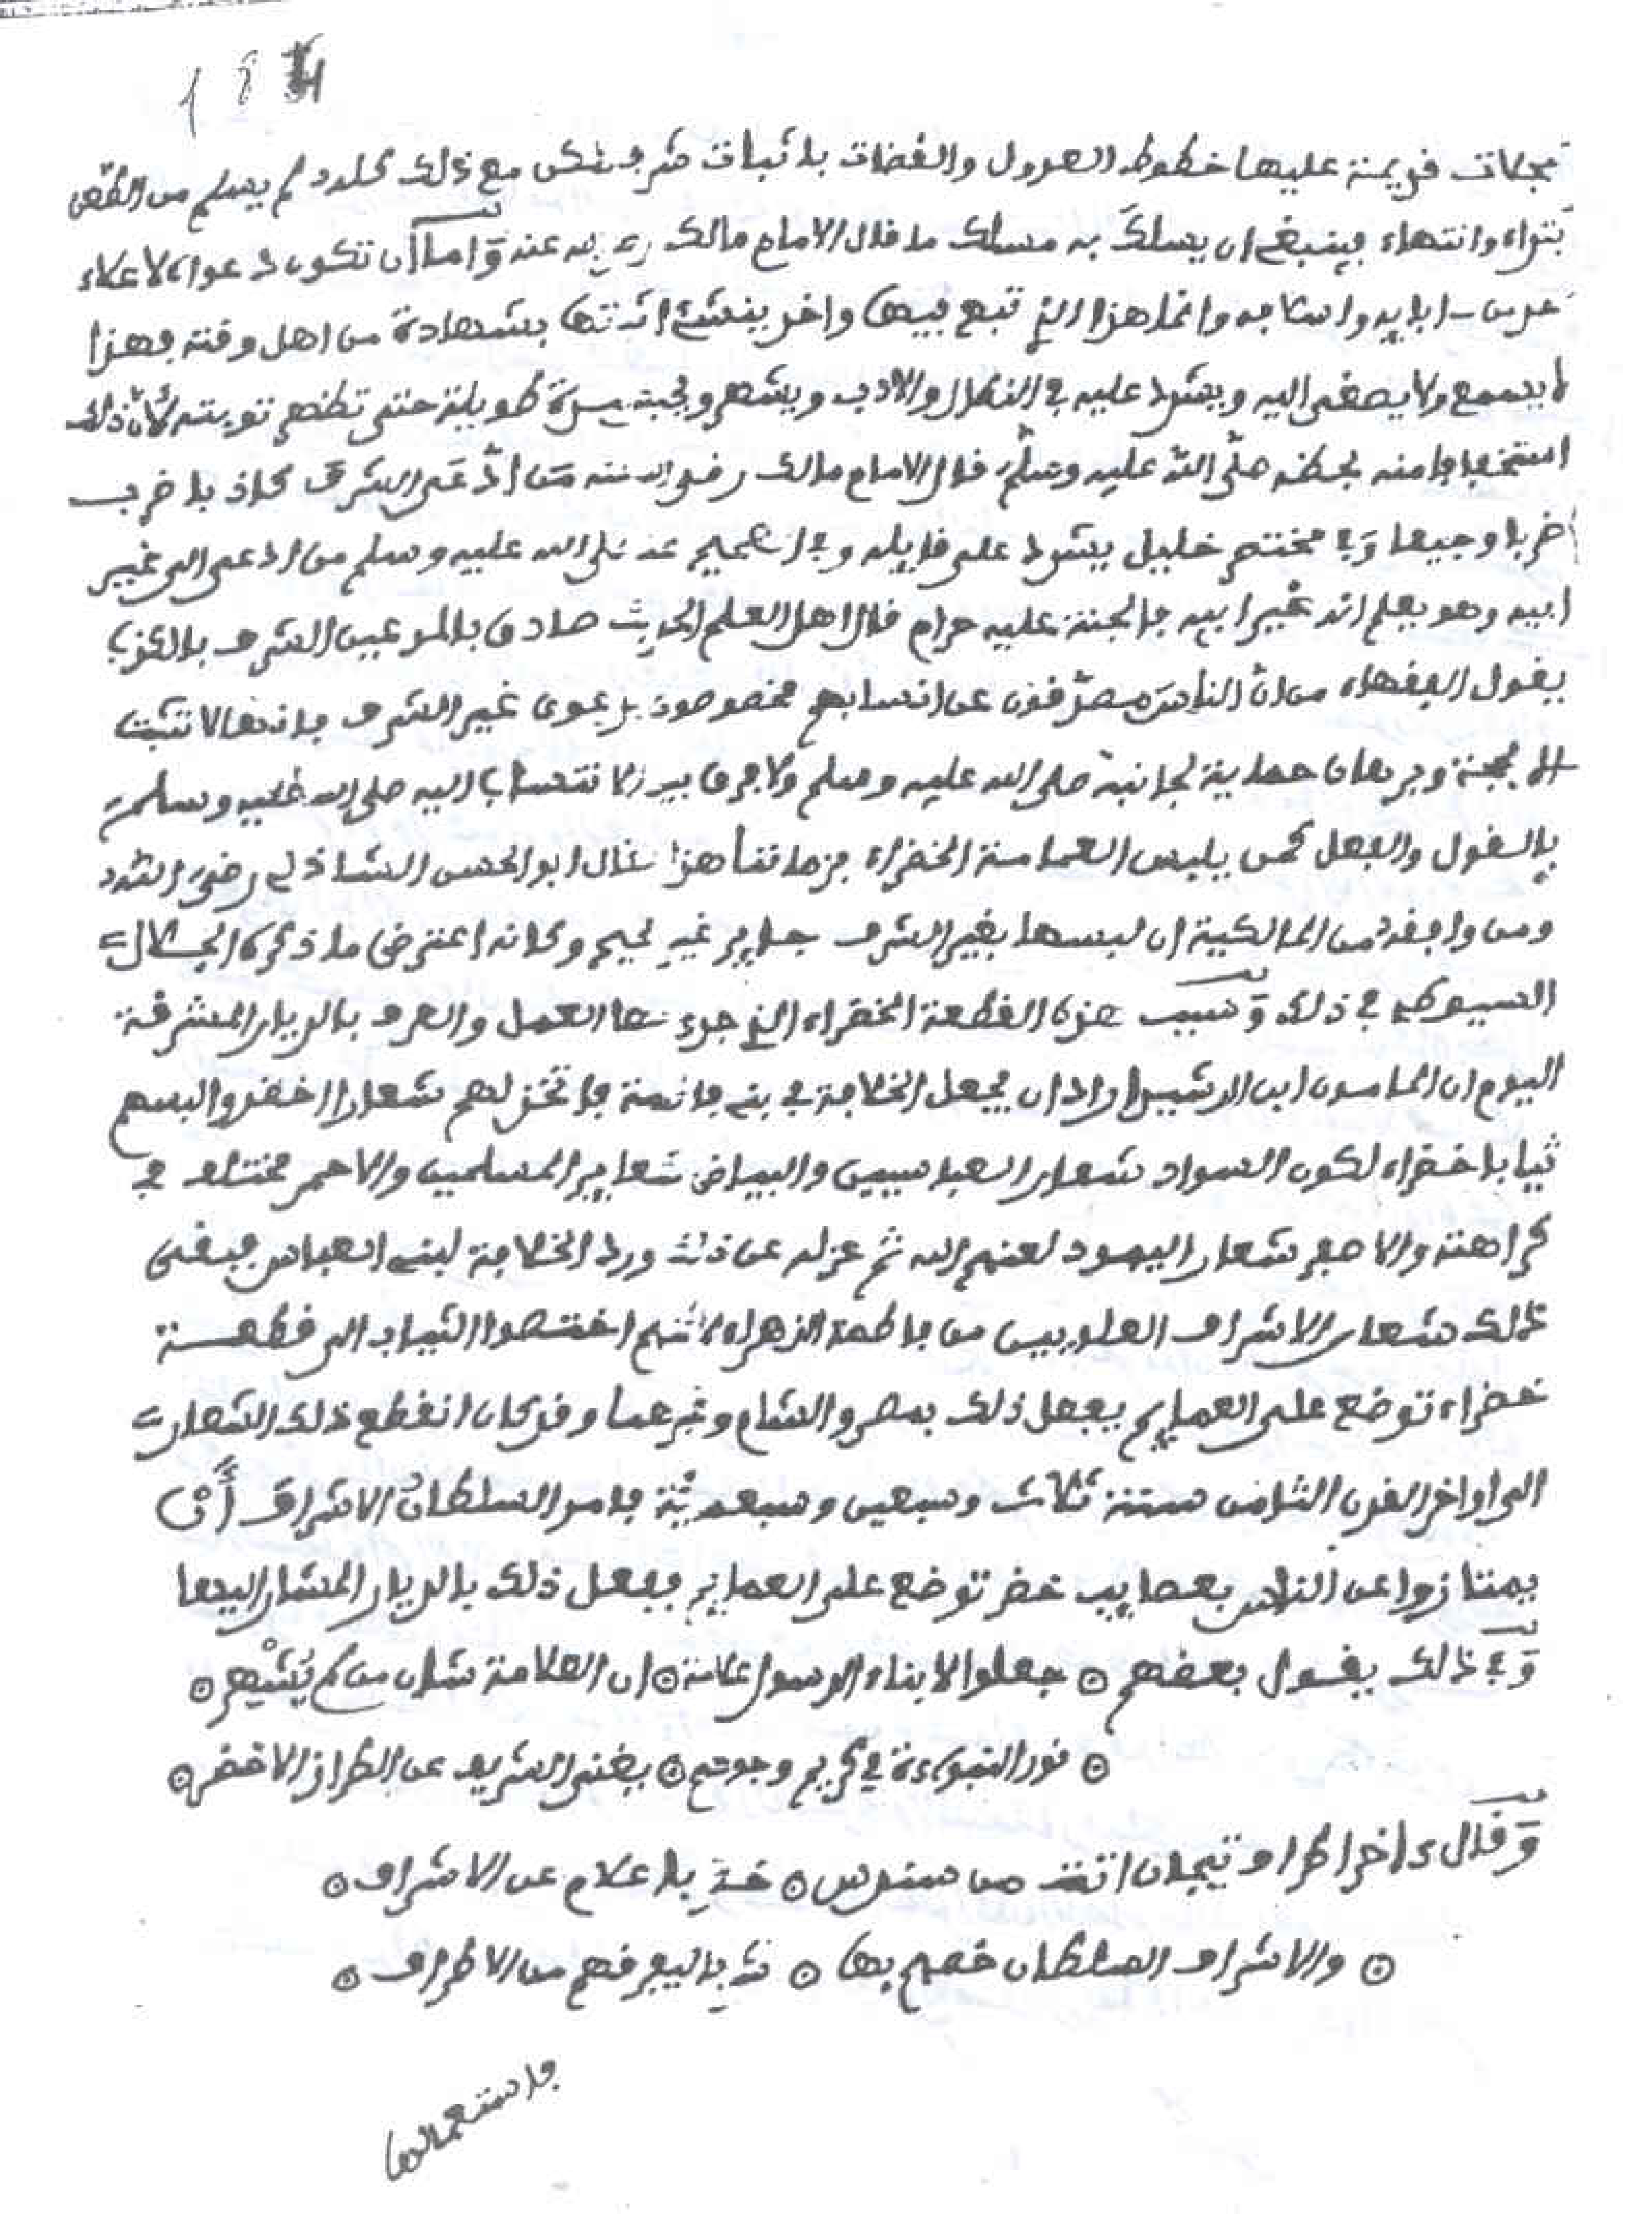 184
قديمة عليها خطوط العدول والقضات باثبات شرف مع ذلك لم يسلم من الطعن
وانتهاء فينبغي ان يسلك به مسلك ما قال الامام مالك عنه وَاما ان تكون دعواه
وانما هذا تبع فيها واخر ينشئ بشهادة من اهل وقته فهذا
لا يسمع ولا يصغى اليه ويشدد عليه في النكال والادب ويشهر طويلة حتى تظهر توبته لأن ذلك
استخفافا منه بحقه صلّى اللّه عليه وسلّم قال الامام مالك رضي الله عنه مَن ادّعَى الشرف كاذبا ضرب
ضربا وجيعا وَفي مختصر خليل يشدد على قايله وفي الصحيح عنه صلى الله عليه وسلم من ادعى الى غير
ابيه وهو يعلم انه غير ابيه فالجنة عليه حرام قال اهل العلم الحديث صادق بالمدعين الشرف بالكذب
بقول الفقهاء من انّ الناسَ مصدّقون عن انسابهم مخصوص بدعوى غير الشرف فانها لا تثبت
الا بحجة وبرهان حماية لجانبه صلى الله عليه وسلم ولا فرق بين الانتساب اليه صلى الله عليه وسلم
بالقول والفعل كمن يلبس العمامة الخضراء قال ابو الحسن الشاذلي رضي اللّه
ومن وافقه من المالكية ان لبسها بغير الشرف جايز غير صحيح وكانه اعترض ما ذكره الجلال
السيوطي في ذلك وَسبب هذه القطعة الخضراء التي جرى بها العمل والعرف بالديار المشرقة
اليوم ان المامون ابن الرشيد اراد ان يجعل الخلافة في بني فاطمة فاتخذ لهم شعارا اخضر والبسهم
ثيابا خضراء لكون السواد شعار العباسيين والبياض شعاير المسلمين والاحمر مختلف في
كراهته والاصفر شعار اليهود لعنهم الله ثم عزل عن ذلك ورد الخلافة لبني العباس فبقى
ذلك شعار الاشراف العلويين من فاطمة الزهراء لاكنهم اختصروا الثياب الى قطعة
خضراء توضع على العمايم يفعل ذلك بمصر والشام وغيرهما وقد كان انقطع ذلك الشعار
الى اواخر القرن الثامن سنة ثلاث وسبعين وسبعمئة فامر السلطانُ الاشرافَ أَنْ
يمتازوا عن الناس بعصايب خضر توضع على العمايم ففعل ذلك بالديار المشار اليها
وَفي ذلك يقول بعضهم ⊙ جعلوا لابناء الرسول علامة ⊙ ان العلامة شان من لم يُشْهر ⊙
⊙ نور النبوءة في كريم وجوههم ⊙ يغني الشريف عن الطراز الاخضر ⊙
وَقال ءاخر اطراف تيجان اتت من سندس ⊙ خضر باعلام على الاشراف ⊙
⊙ والاشراف السلطان خصهم بها ⊙ شرفا ليعرفهم من الاطراف ⊙
فاستعمالها